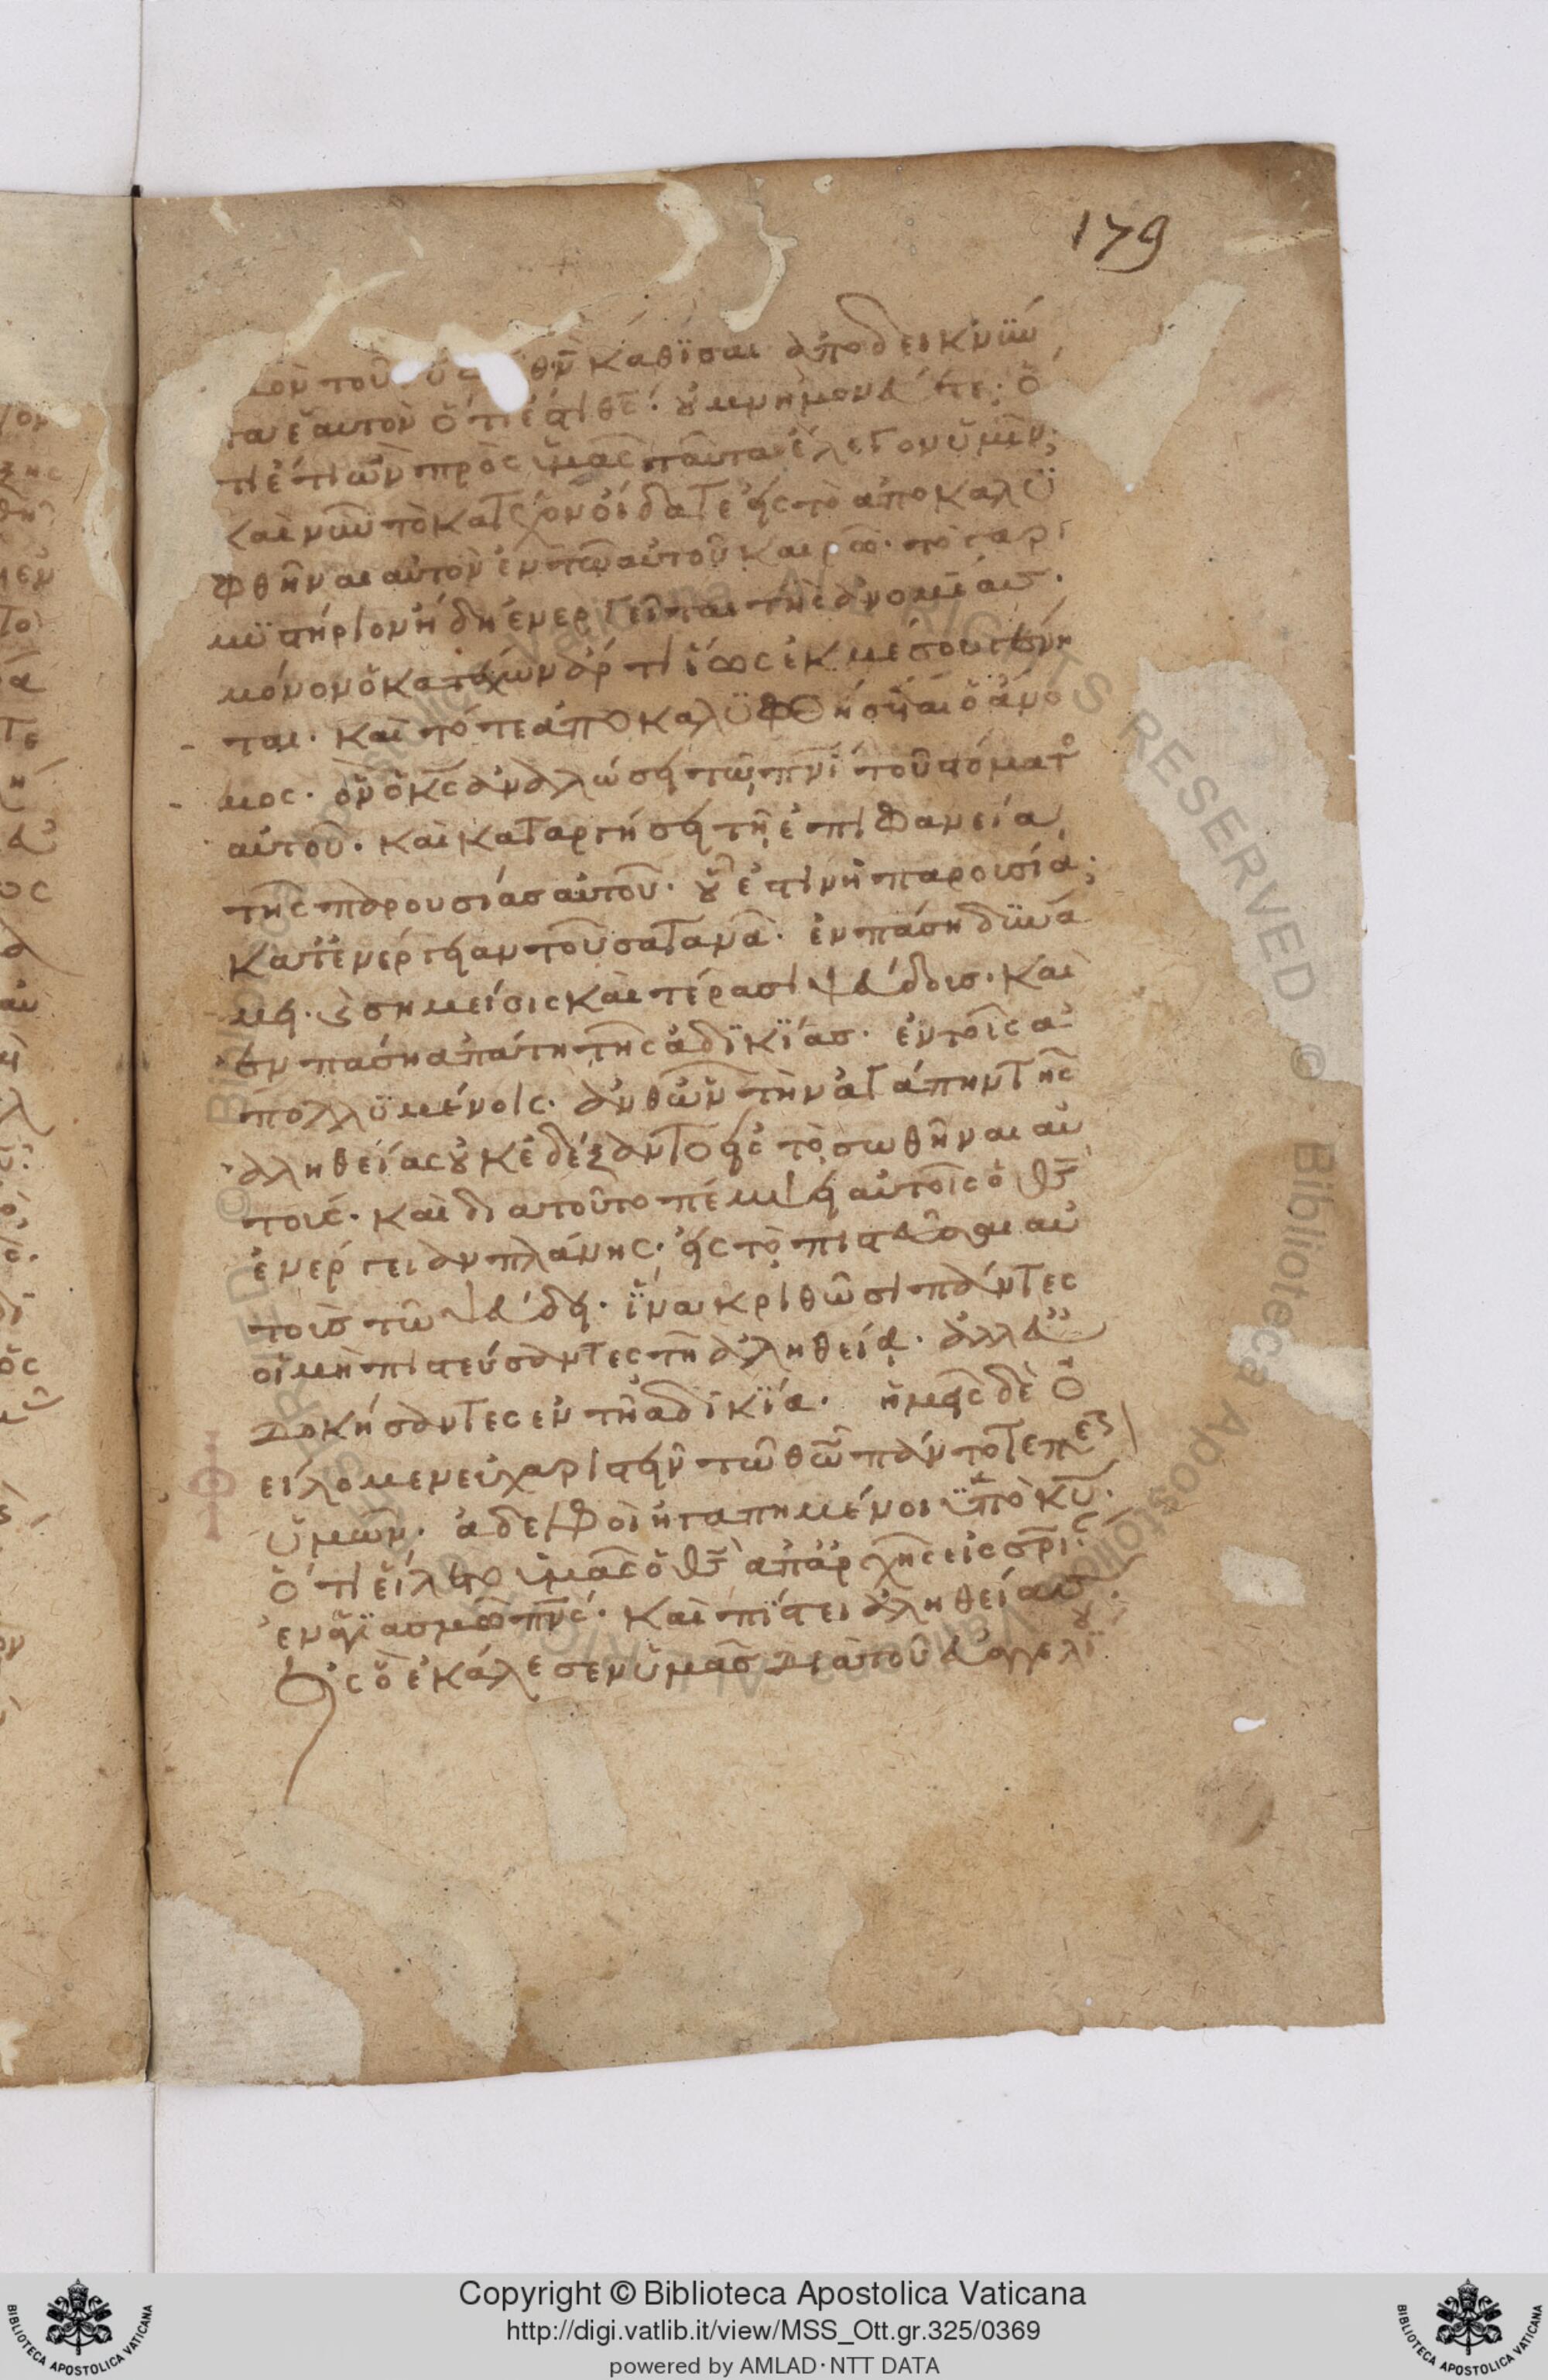 179
τοῦ θῡ καθϊσαι ἀποδεικνϋῶν
τα ἑαυτὸν ὅτι ἐστὶ θς̄. οὐ μνημονεύετε; ὅ
τι ἔτι ὢν πρὸς ὑμᾶς ταῦτα ἔλεγον ὑμῖν;
καὶ νῦν τὸ κατέχον οἴδατε εἰς τὸ αποκαλϋ
φθῆναι αυτὸν ἐν τῶ αὐτοῦ καιρῶ. τὸ γαρ
μϋστήριον ἤδη ἐνεργεῖται τῆς ἀνομίασ.
μόνον ὁ κατέχων ἄρτι ἕως ἐκ μέσου γένη
ται. καὶ τότε ἀποκαλϋφθήσεται ὁ ἄνο
μος. ὃν ὁ κς̄ ἀναλώσει τῶ πνΐ τοῦ στόματο
αὐτοῦ. καὶ καταργήσει τῆ ἐπιφανεία
τῆς παρουσίασ αὐτοῦ. οὗ ἐστὶν ἡ παρουσία;
κατ' ἐνέργειαν τοῦ σατανᾶ. ἐν πάση δϋνά
μει. καὶ σημείοις καὶ τέρασι ψεύδουσ. καὶ
ἐν πάση απάτη τῆς ἀδϊκΐασ. ἐν τοῖς α
πολλϋμένοις. ἀνθ' ὧν τὴν ἀγάπην τῆς
ἀληθείας οὐκ ἐδέξαντο εἰς τὸ σωθῆναι αὐ
τούς. καὶ διατοῦτο πέμψει αὐτοῖς ὁ θς̄
ἐνέργειαν πλάνης. εἰς τὸ πιστεῦσαι αὐ
τοὺσ τῶ ψεύδει. ἵνα κριθῶσι πάντες
οἱ μὴ πιστεύσαντες τῆ ἀληθεία. ἀλλ' εὐ
δοκήσαντες ἐν τῆ αδικΐα. ἡμεῖς δὲ ὀ
είλομεν εὐχαριστεῖν τῶ θῶ πάντοτε περι
ὑμῶν. ἀδελφοὶ ἠγαπημένοι ὑπὸ κῡ.
ὅτι εἵλετο ὑμᾶς ὁ θς̄ ἀπαρχῆς εἰς σρ̄ι
ἐν ἁγϊασμῶ πνς̄. καὶ πϊστει ἀληθείασ.
εἰς ὃ ἐκάλεσεν ὑμᾶσ διὰ τοῦ εὐαγγελΐου
Copyright © Biblioteca Apostolica Vaticana
http://digi.vatlib.it/view/MSS_Ott.gr.325/0369
powered by AMLAD·NTT DATA
BIBLIOTECA APOSTOLICA VATICANA
BIBLIOTECA APOSTOLICA VATICANA